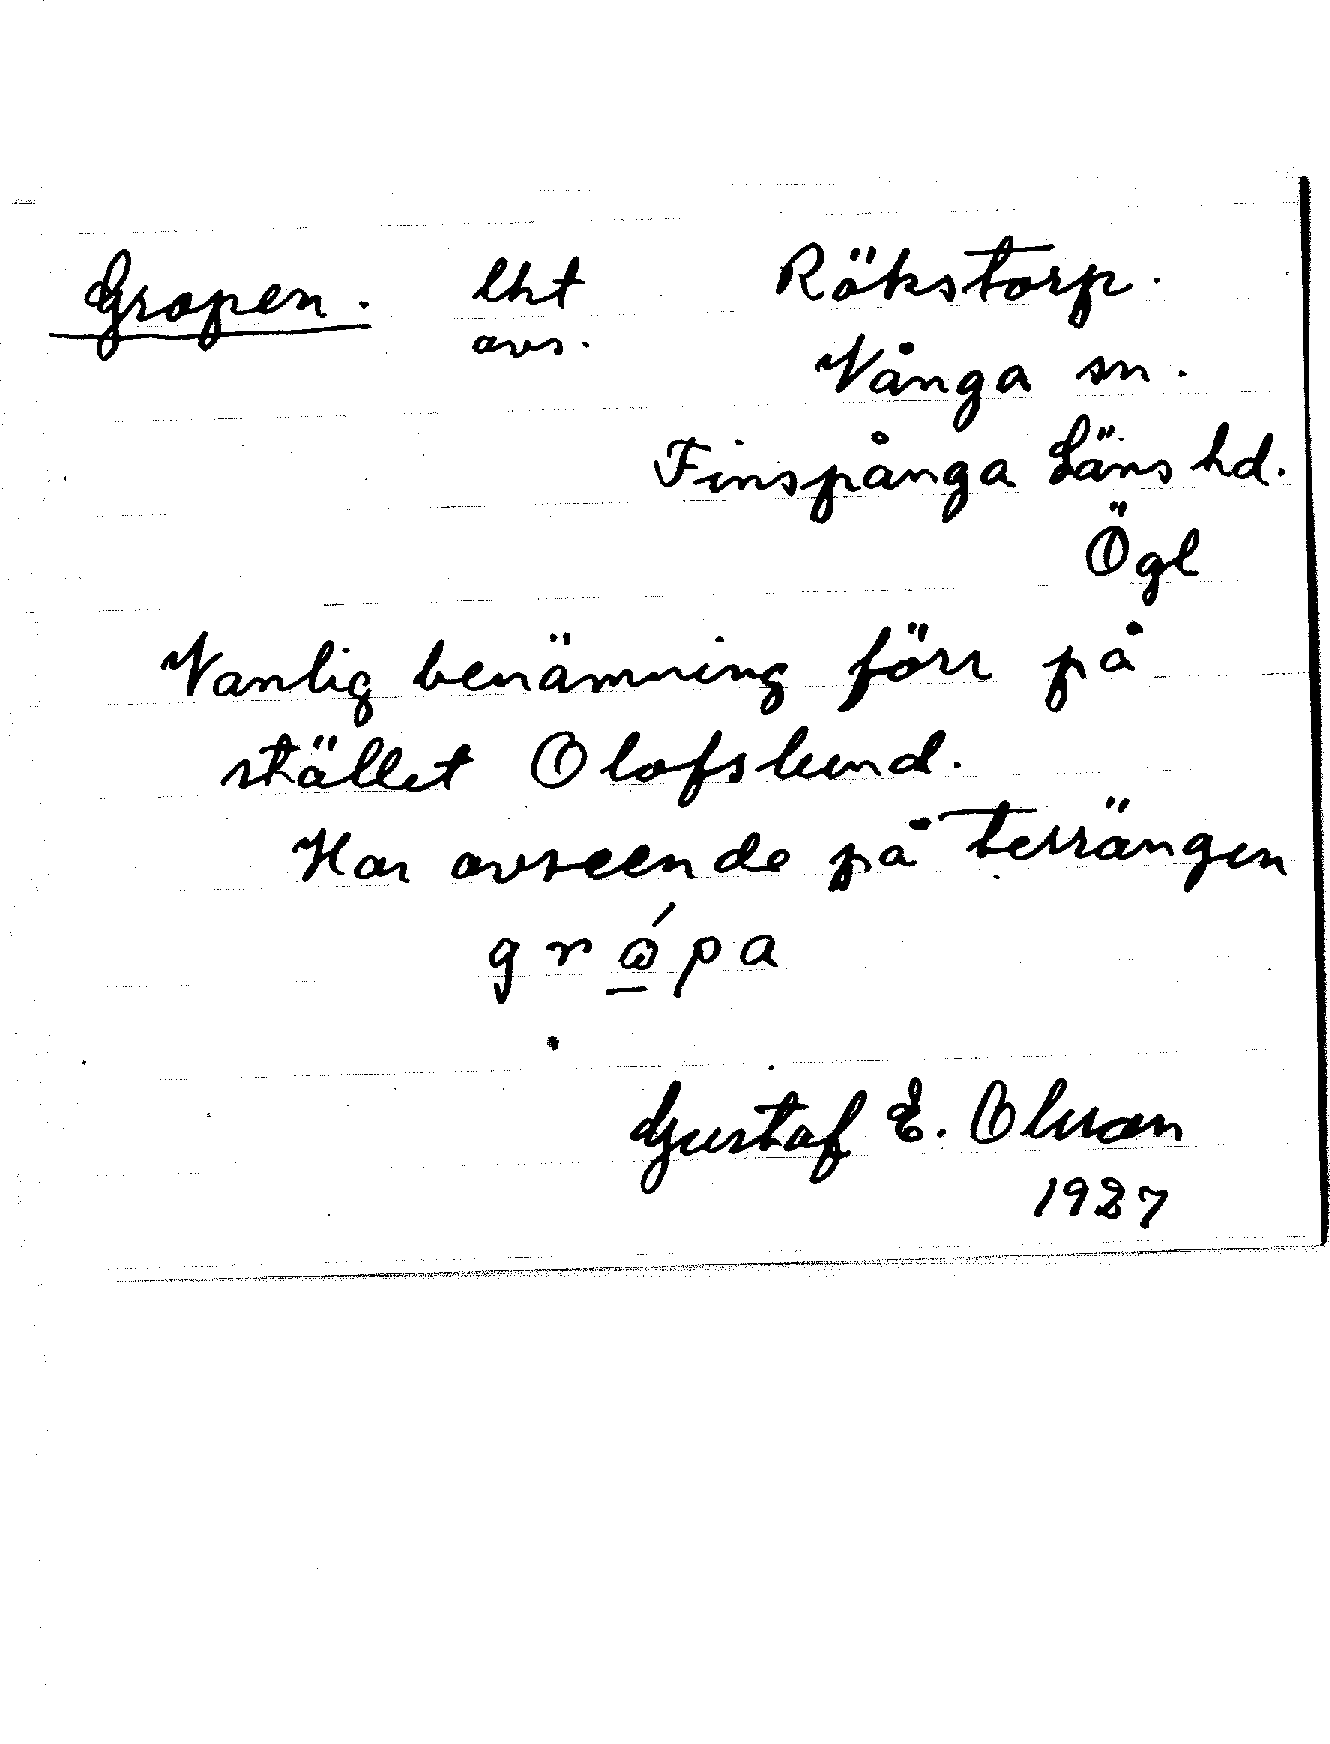 Gropen. lht Rökstorp.
avs.
Vånga sn.
Finspånga Läns hd.
Ögl
Vanlig benämning förr på
stället Olofslund.
Har avseende på terrängen
Gustaf E. Olsson
1927